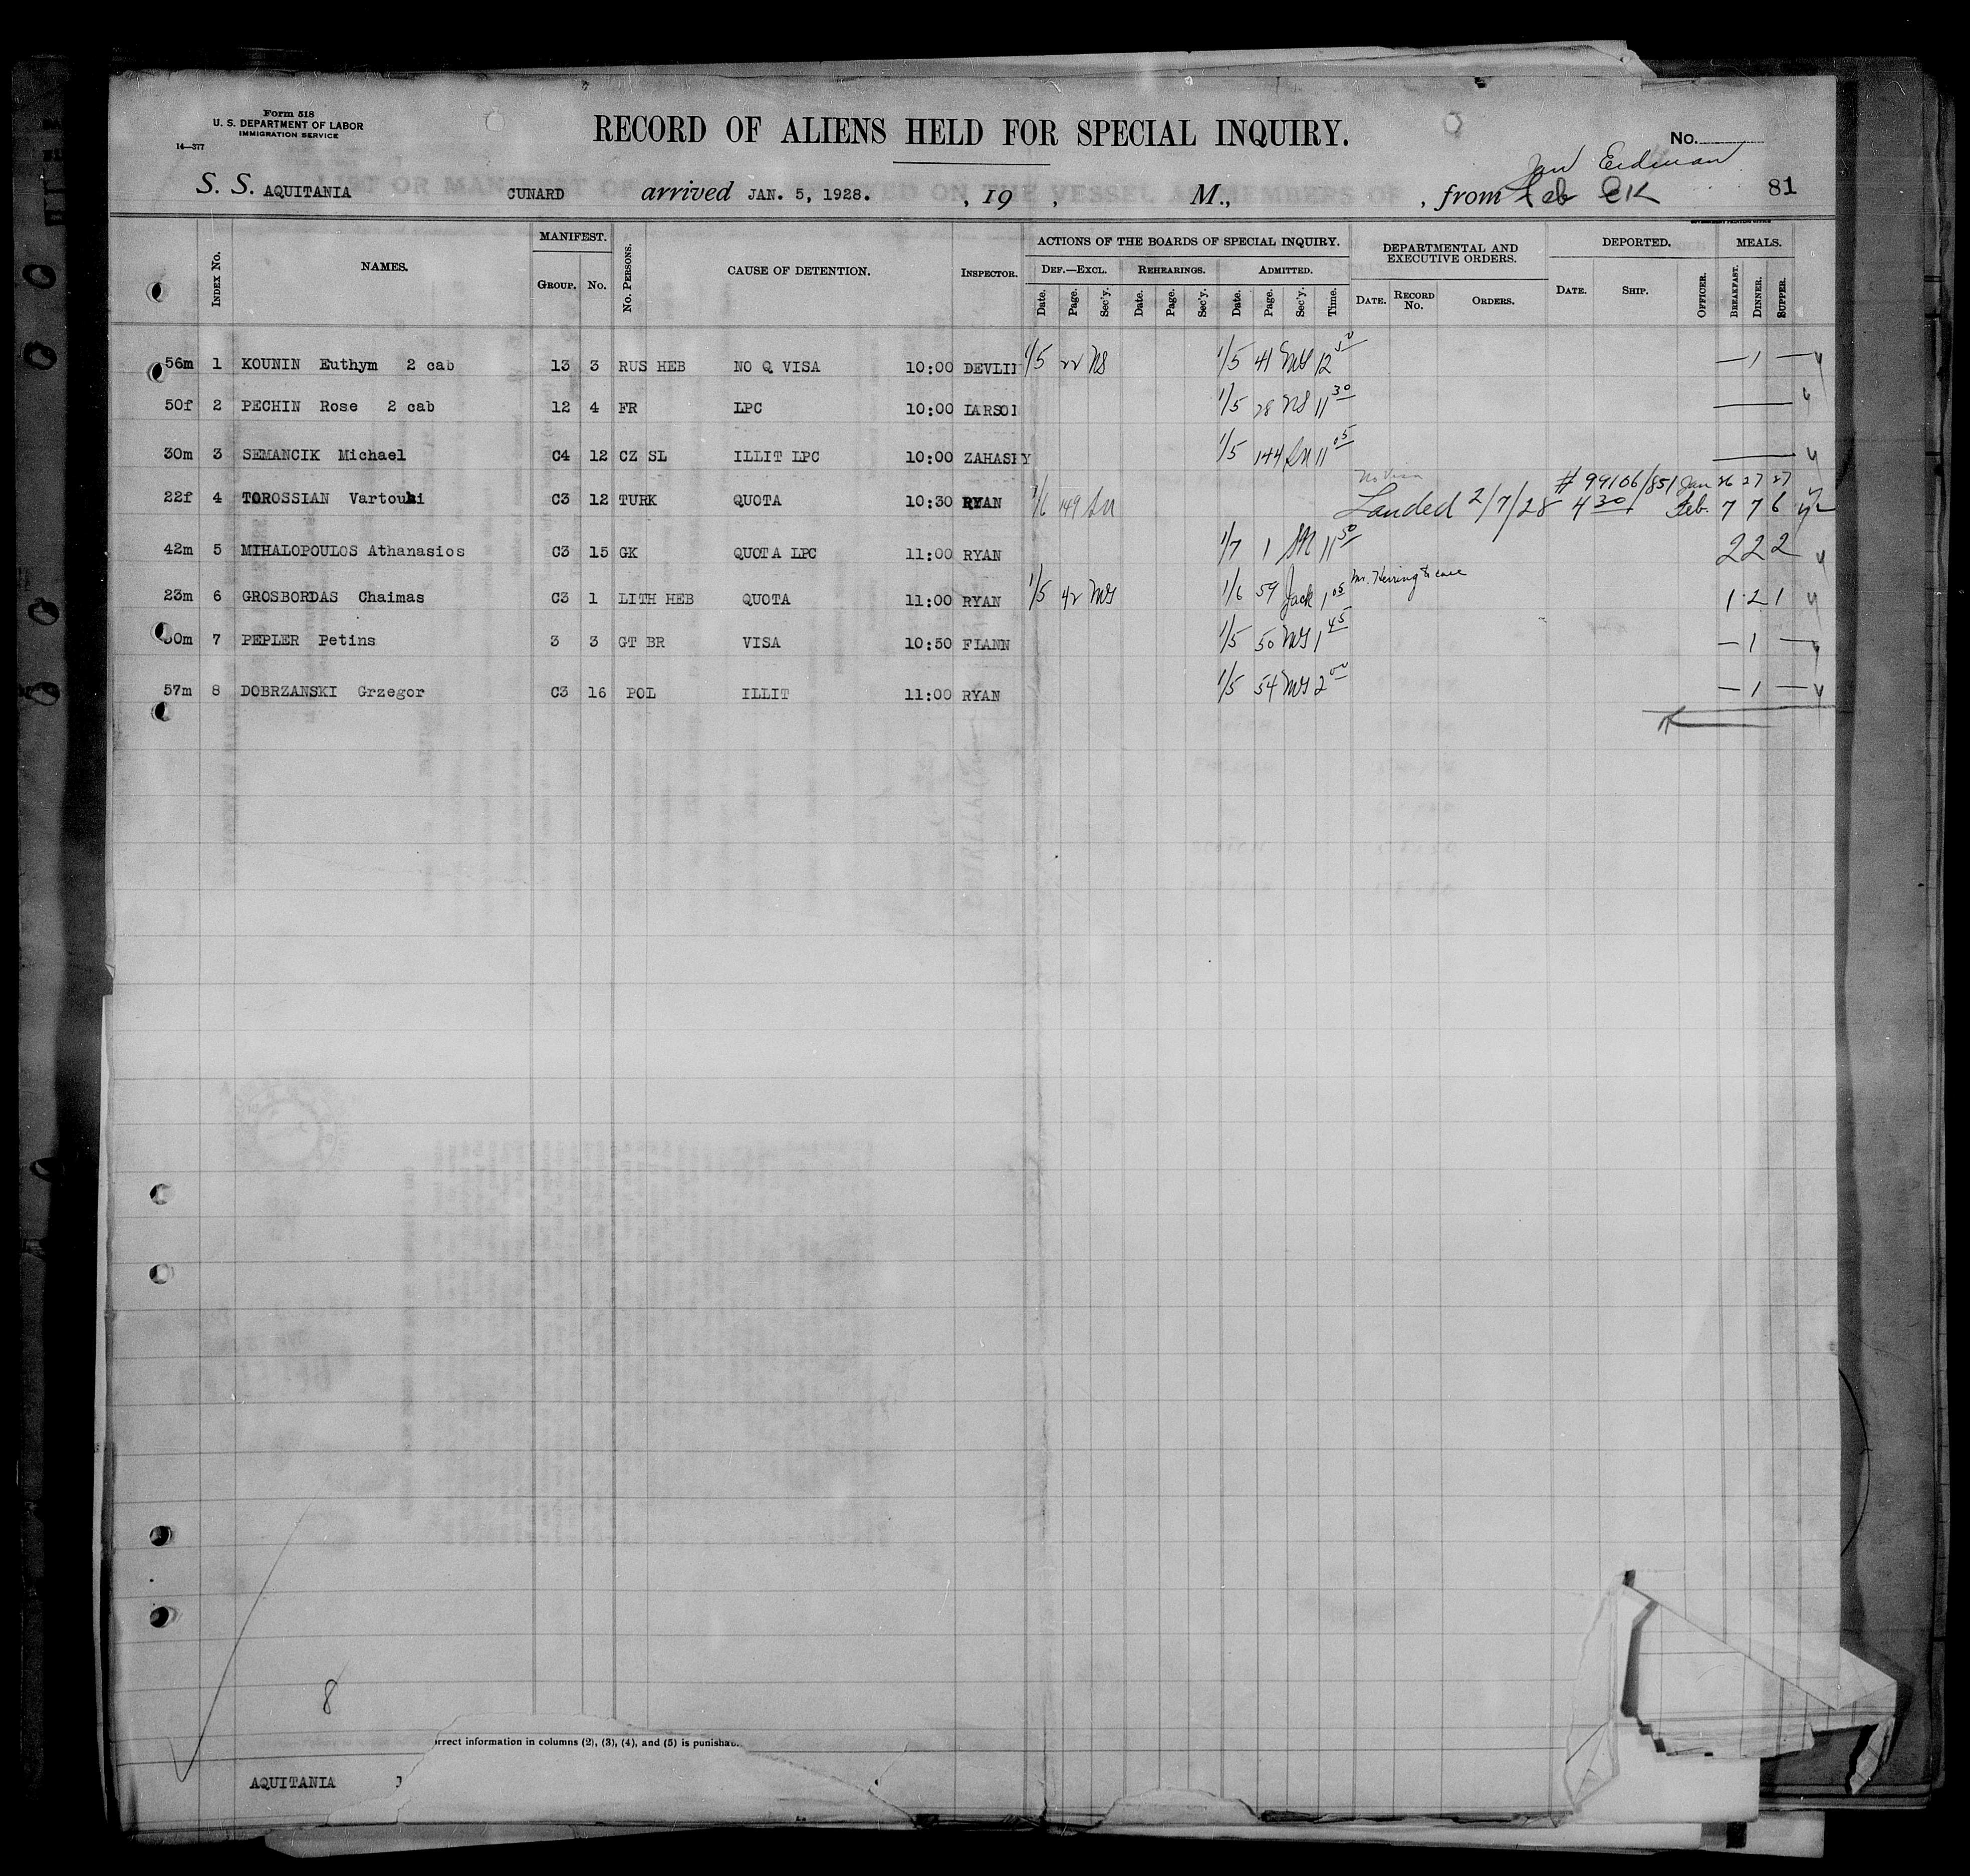 Form 518
U. S. DEPARTMENT OF LABOR
IMMIGRATION SERVICE
14—377
RECORD OF ALIENS HELD FOR SPECIAL INQUIRY.
No.
Jan Erdman
S. S. AQUITANIA CUNARD arrived JAN. 5, 1928. , 19 , M., , from Feb EK 81
Index No. NAMES. MANIFEST. Group. No. No. Persons. CAUSE OF DETENTION. Inspector. ACTIONS OF THE BOARDS OF SPECIAL INQUIRY. Def.—Excl. Date. Page. Sec'y. Rehearings. Date. Page. Sec'y. Admitted. Date. Page. Sec'y. Time. DEPARTMENTAL AND EXECUTIVE ORDERS. Date. Record No. Orders. DEPORTED. Date. Ship. Officer. MEALS. Breakfast. Dinner. Supper.
56m 1 KOUNIN Euthym 2 cab 13 3 RUS HEB NO Q VISA 10:00 DEVLIN 1/5 22 NS 1/5 41 MS 12 50 — 1 —
50f 2 PECHIN Rose 2 cab 12 4 FR LPC 10:00 LARSON 1/5 28 NS 11 30 —
30m 3 SEMANCIK Michael C4 12 CZ SL ILLIT LPC 10:00 ZAHASKY 1/5 144 SM 11 05 —
No Visa # 99106/851 Jan 26 27 27
22f 4 TOROSSIAN Vartouhi C3 12 TURK QUOTA 10:30 RYAN 1/6 149 SM Landed 2/7/28 4 30 Feb. 7 7 6
42m 5 MIHALOPOULOS Athanasios C3 15 GK QUOTA LPC 11:00 RYAN 1/7 1 SM 11 50 2 2 2
23m 6 GROSBORDAS Chaimas C3 1 LITH HEB QUOTA 11:00 RYAN 1/5 42 MS 1/6 59 Jack 1 05 1 2 1
30m 7 PEPLER Petins 3 3 GT BR VISA 10:50 FLANN 1/5 50 MS 1 45 — 1 —
57m 8 DOBRZANSKI Grzegor C3 16 POL ILLIT 11:00 RYAN 1/5 54 MS 2 00 — 1 —
8
orrect information in columns (2), (3), (4), and (5) is punishab
AQUITANIA J